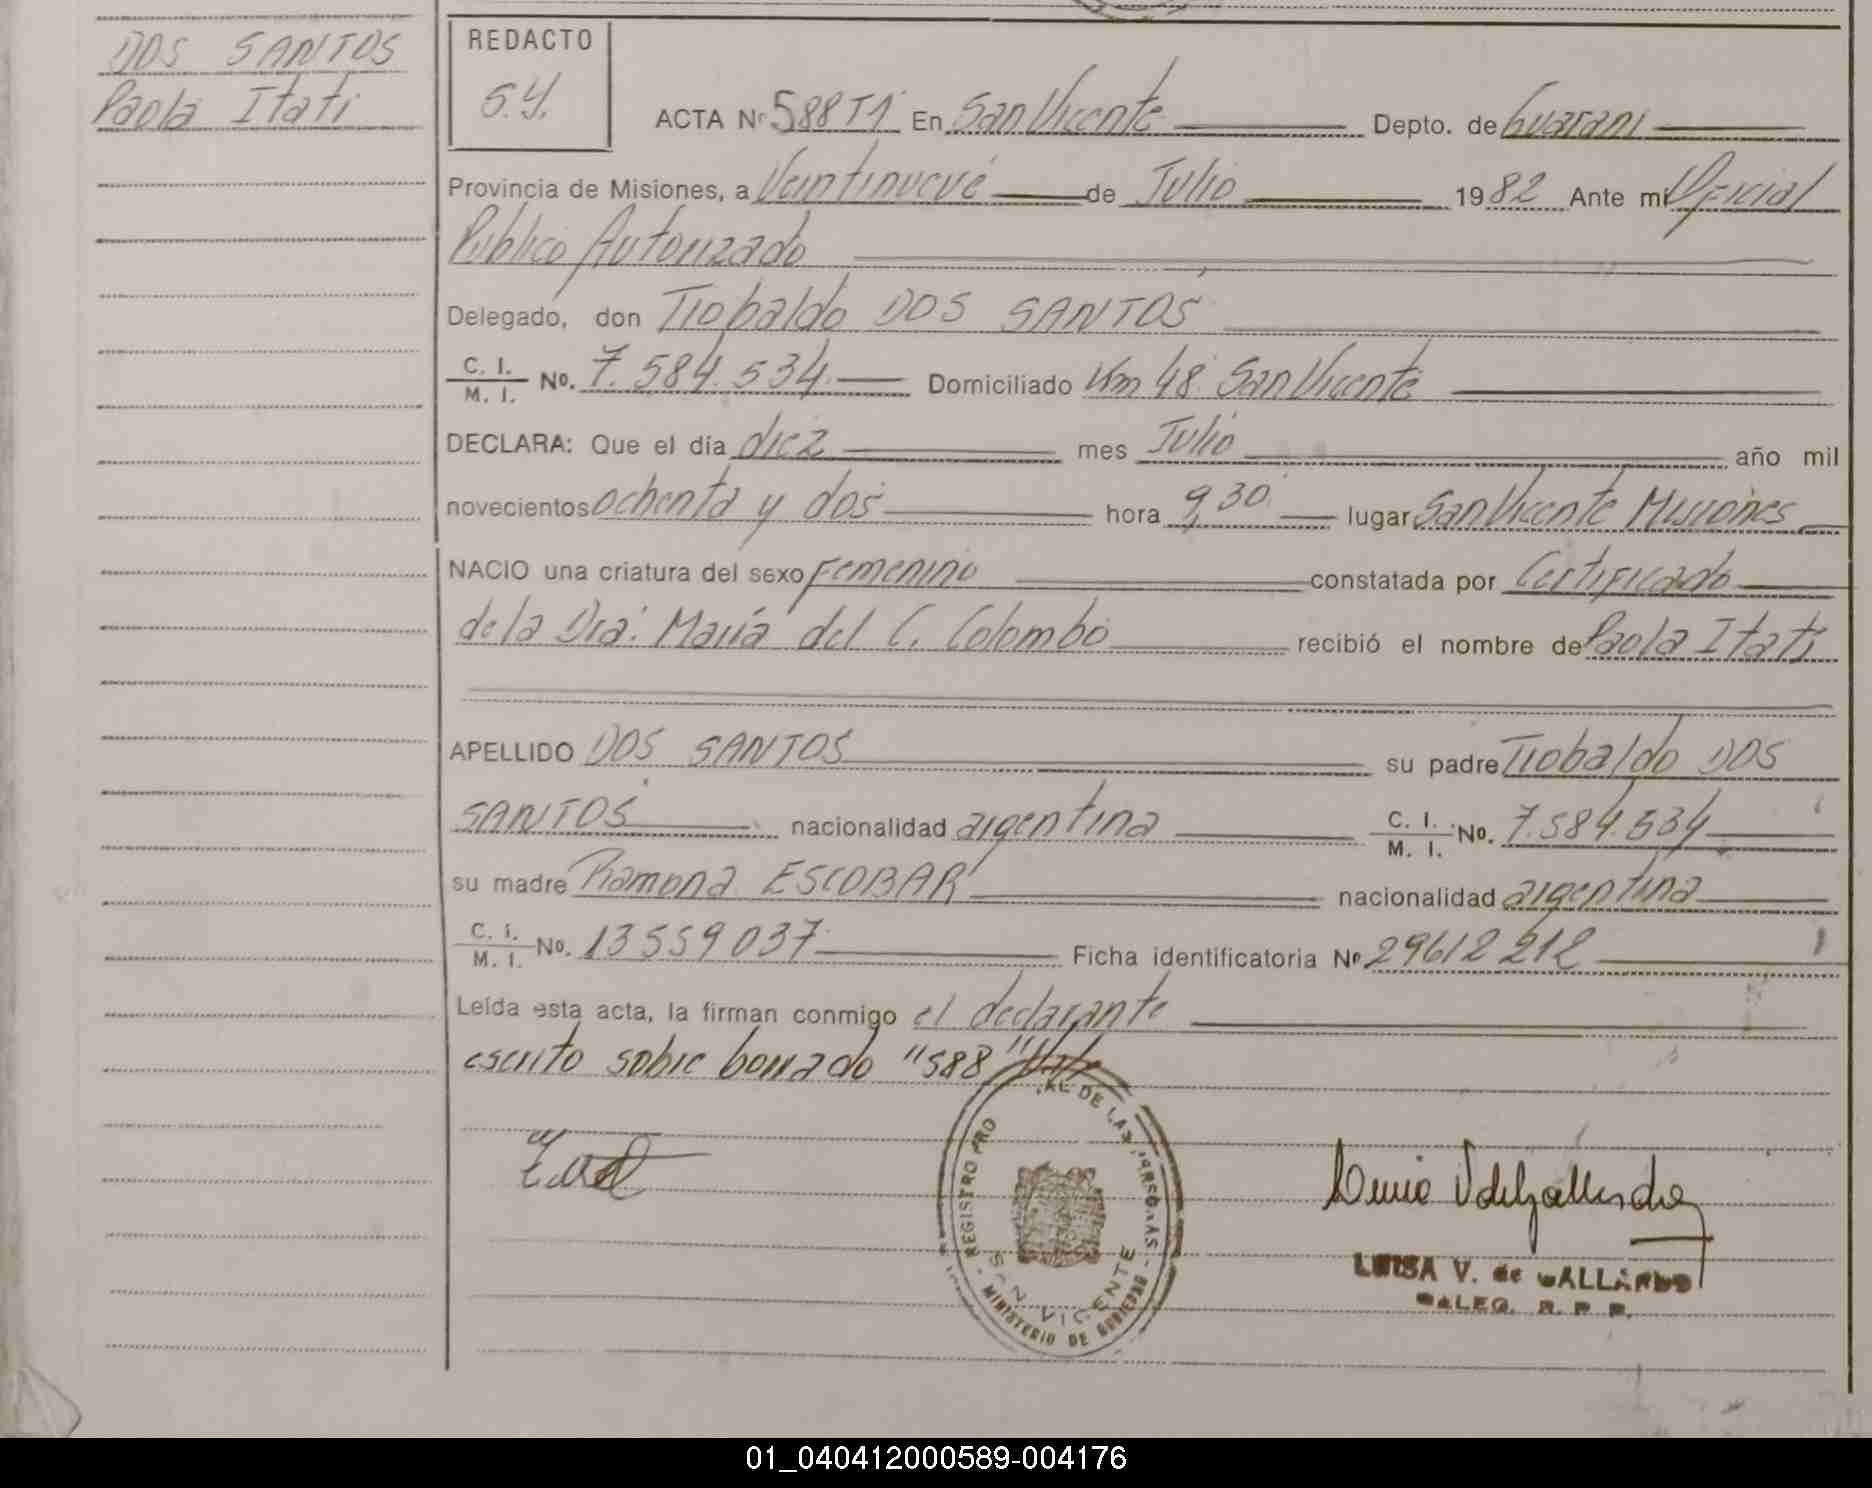 DOS SANTOS
Paola Itati
REDACTO
S.Y.
ACTA Nº 588 T1 En San Vicente Depto. de Guarani
Provincia de Misiones, a Veintinueve de Julio 1982 Ante mi Oficial
Publico Autorizado
Delegado, don Tiobaldo DOS SANTOS
C. I. / M. I. No. 7.584.534 Domiciliado Km 48 San Vicente
DECLARA: Que el día diez mes Julio año mil
novecientos ochenta y dos hora 9,30 lugar San Vicente Misiones
NACIO una criatura del sexo Femenino constatada por Certificado
de la Dra. María del C. Colombo recibió el nombre de Paola Itati
APELLIDO DOS SANTOS su padre Tiobaldo DOS
SANTOS nacionalidad argentina C. I. / M. I. No. 7.584.534
su madre Ramona ESCOBAR nacionalidad argentina
C. I. / M. I. No. 13559037 Ficha identificatoria No 29612212
Leída esta acta, la firman conmigo el declarante
escrito sobre borrado "588" Vale
REGISTRO PRO AL DE LAS PERSONAS
SAN VICENTE
MINISTERIO DE GOBIERNO
LUISA V. de GALLARDO
DELEG. R. P. P.
01_040412000589-004176